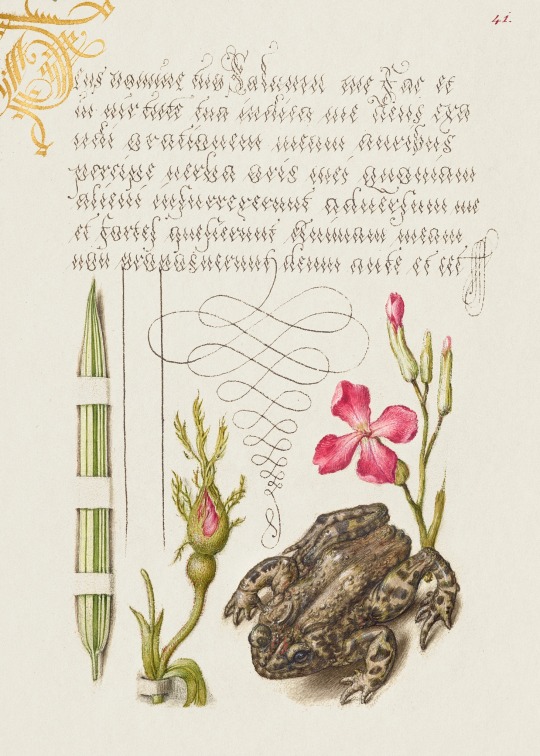 41.
Deus in nomine tuo Saluum me Fac et
in uirtute tua iudica me Deus exa
udi orationem meam auribus
percipe uerba oris mei quoniam
alieni insurrexerunt aduersum me
et fortes quesierunt Animam meam
non proposuerunt deum ante et